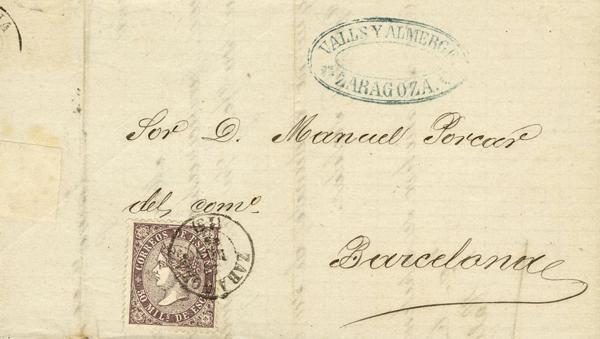 VALLS Y ALMERGE
ZARAGOZA.
Sor D. Manuel Porcar
del como.
Barcelona
CORREOS DE ESPAÑA
50 MILS. DE ESC